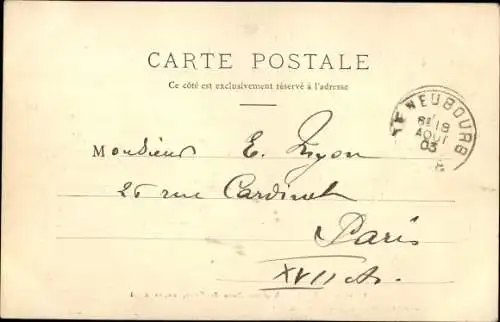 CARTE POSTALE
Ce côté est exclusivement réservé à l'adresse
LE NEUBOURG
18
AOUT
03
Monsieur E.
26 rue Cardinet
Paris
XVII Ar.